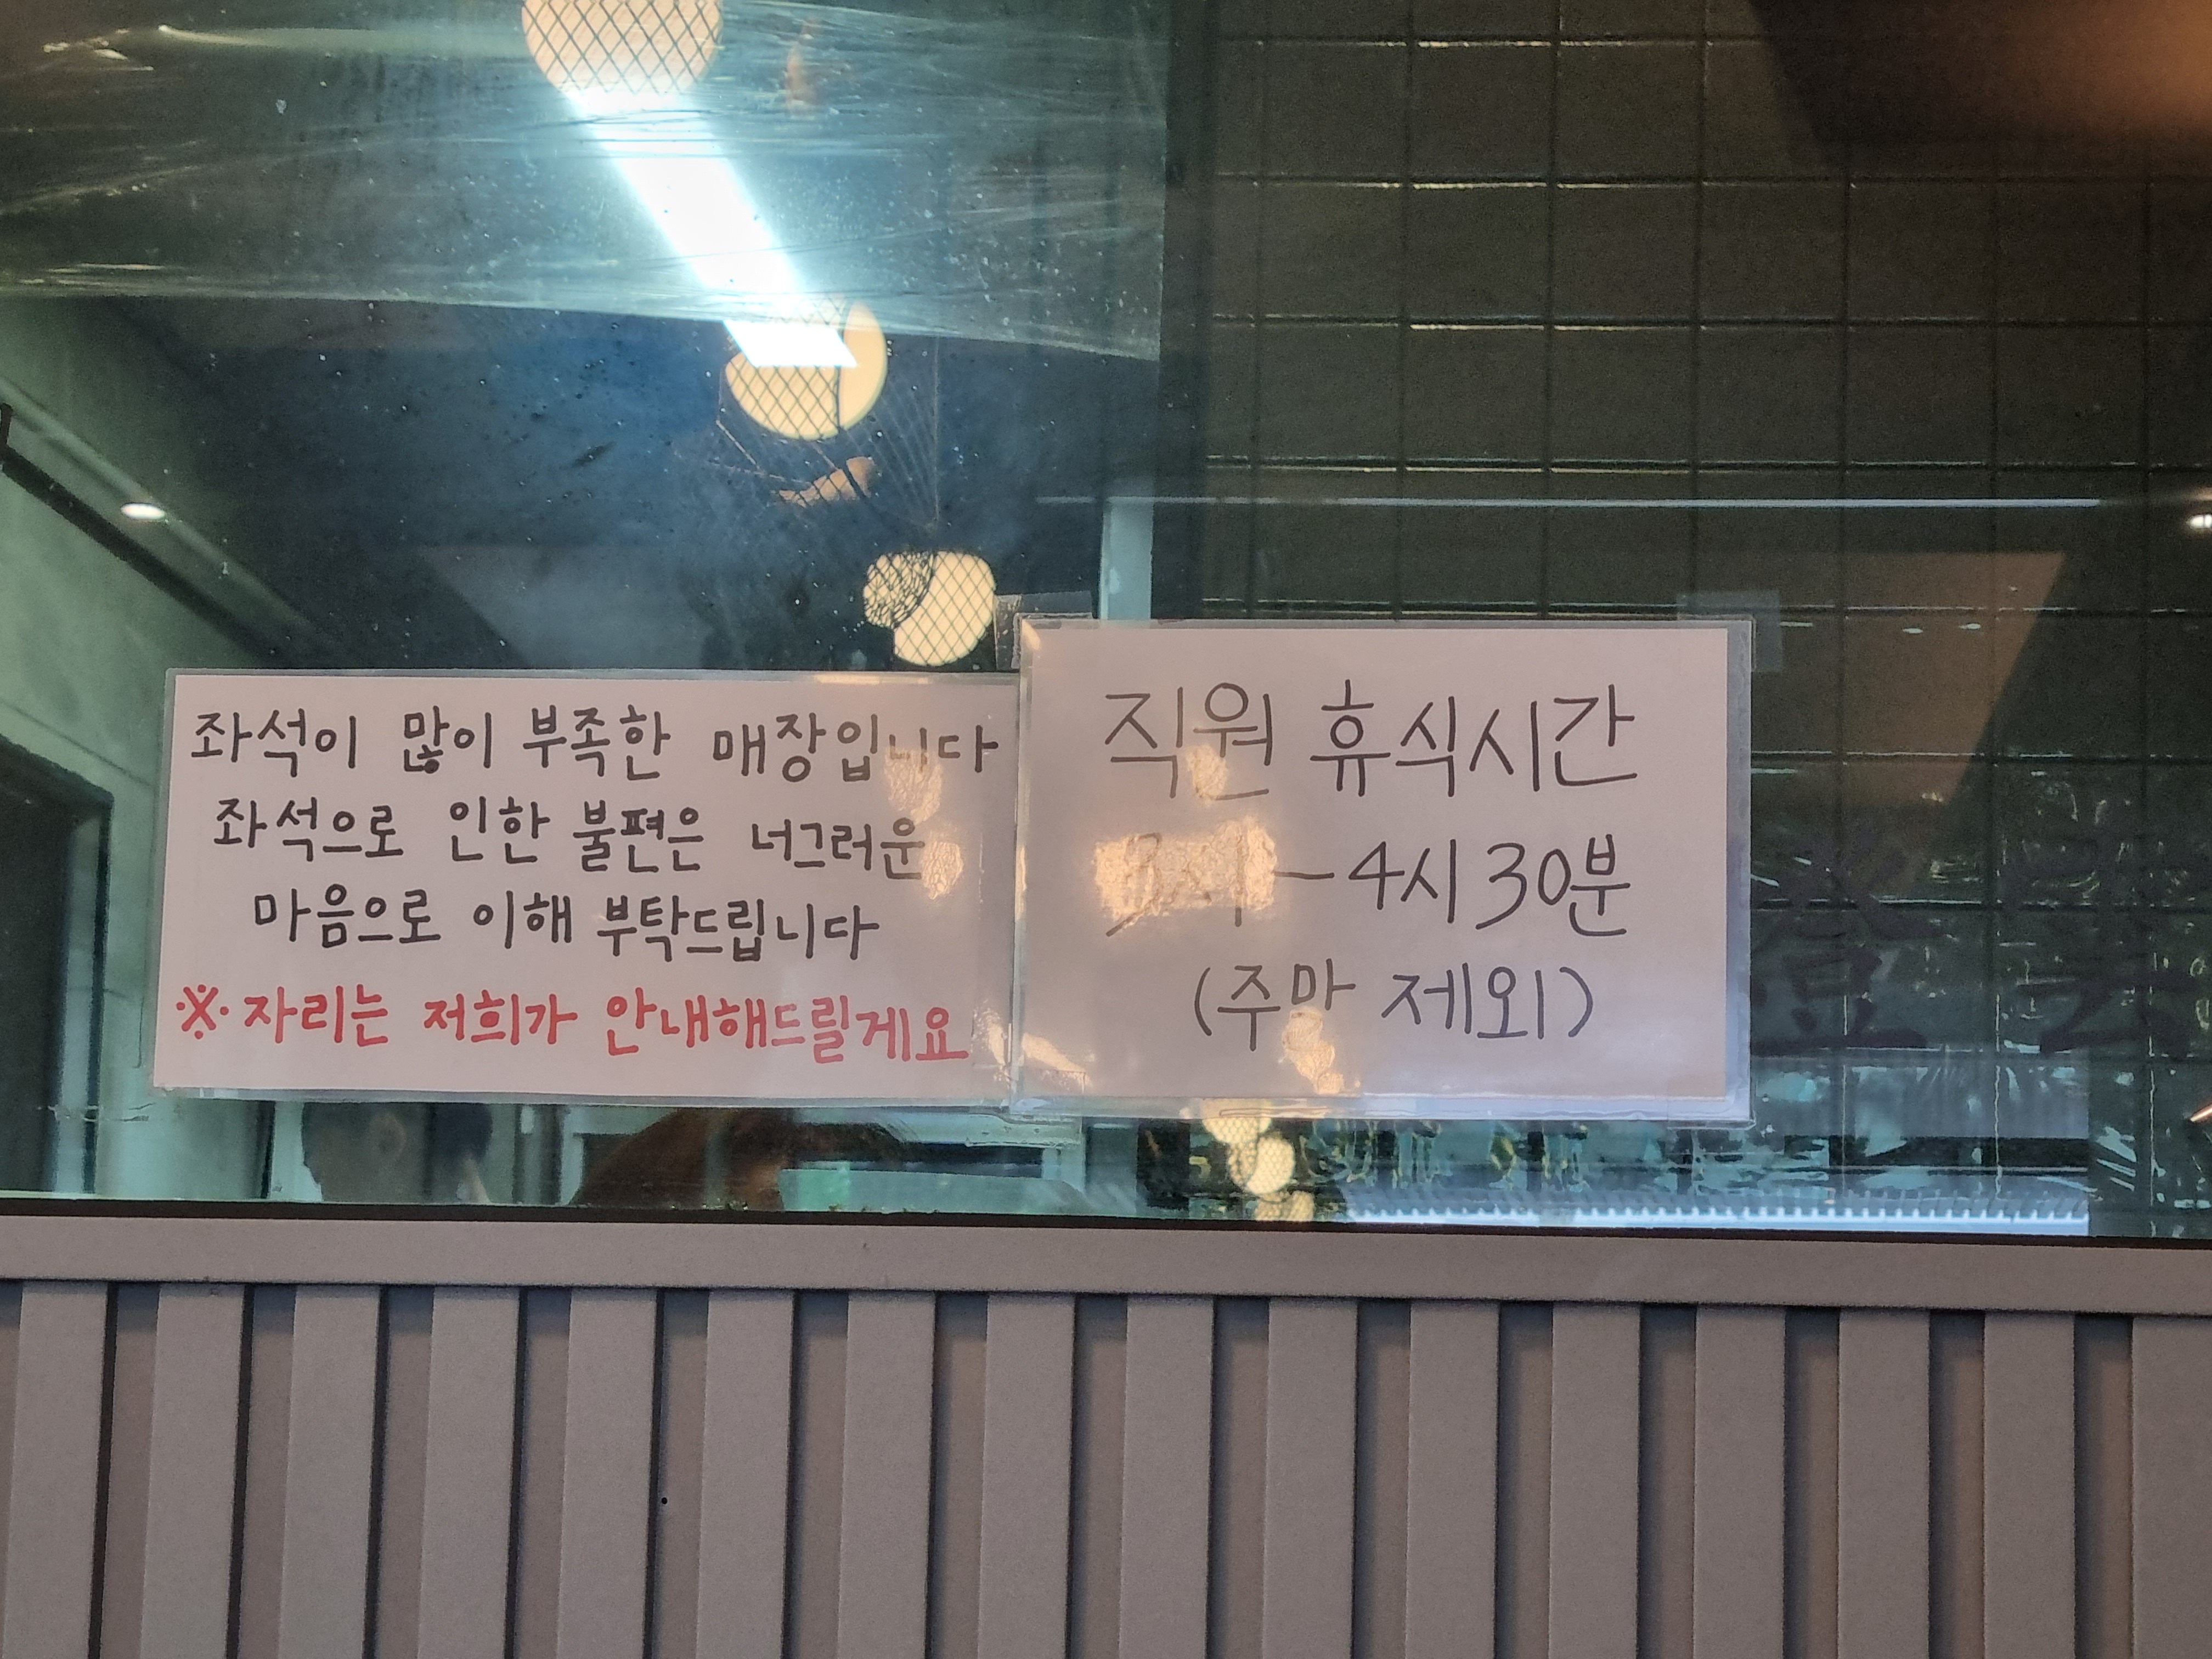 좌석이 많이 부족한 매장입니다
좌석으로 인한 불편은 너그러운
마음으로 이해 부탁드립니다
※ 자리는 저희가 안내해드릴게요
직원 휴식시간
3시 - 4시 30분
(주말 제외)